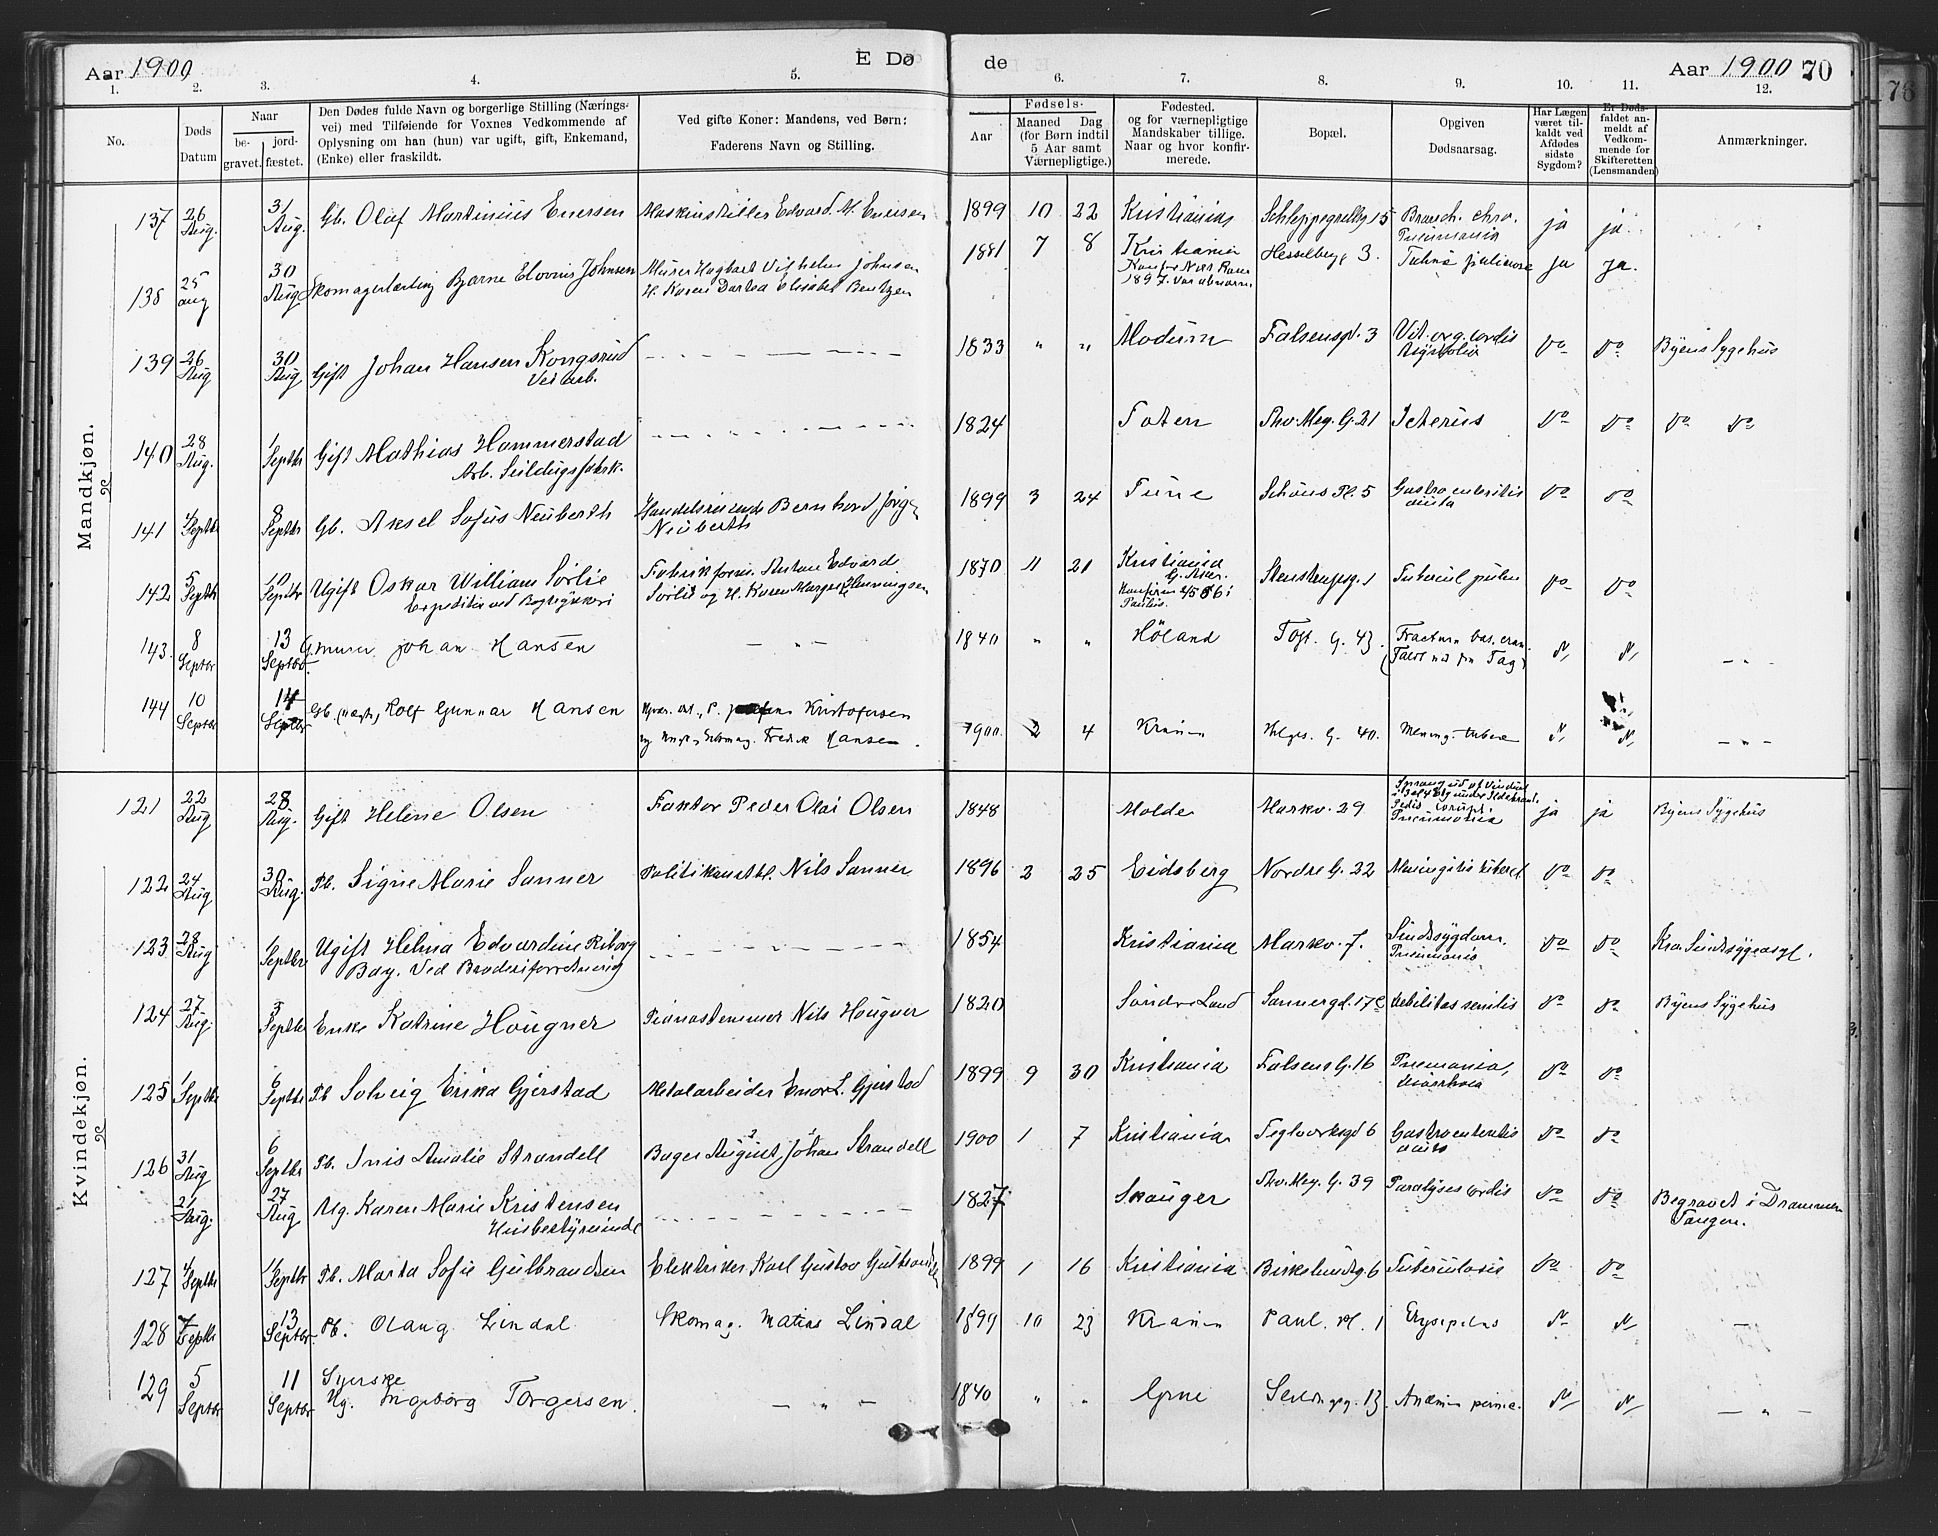 Aar 1900 E Dø de Aar 1900 70
1. 2. 3. 4. 5. 6. 7. 8. 9. 10. 11. 12.
No.
Døds Datum
Naar
be- gravet.
jord- fæstet.
Den Dødes fulde Navn og borgerlige Stilling (Nærings-
vei) med Tilføiende for Voxnes Vedkommende af
Oplysning om han (hun) var ugift, gift, Enkemand,
(Enke) eller fraskildt.
Ved gifte Koner: Mandens, ved Børn:
Faderens Navn og Stilling.
Fødsels-
Aar
Maaned Dag
(for Børn indtil
5 Aar samt
Værnepligtige.)
Fødested.
og for værnepligtige
Mandskaber tillige.
Naar og hvor konfir-
merede.
Bopæl.
Opgiven
Dødsaarsag.
Har Lægen
været til-
kaldt ved
Afdødes
sidste
Sygdom?
Er Døds-
faldet an-
meldt af
Vedkom-
mende for
Skifteretten
(Lensmanden)
Anmærkninger.
Mandkjøn.
137 26 Aug. 31 Aug. Gb. Olaf Martinius Enersen Maskinstiller Edvard M. Enersen 1899 10 22 Kristiania Schleppegrellsg 15 Bronch. chro. Pneumonia ja ja
138 25 aug 30 Aug Skomagerlærling Bjarne Elovius Johnsen Murer Hagbart Vilhelm Johnsen
H. Karen Dorthea Elisabet Bentzen 1881 7 8 Kristiania Hesselbergg 3. ja ja.
1897.
139 26 Aug 30 Aug Gift Johan Hansen Kongsrud
Veiarb. 1833 " " Modum Falsensgd. 3 Vit. org. cordis
Asystolia do do Byens Sygehus
140 28 Aug. 1 Septbr Gift Mathias Hammerstad
Arb. Seildugsfabrk. 1824 Toten Thv. Mey. G. 21 Icterus do do do do
141 4 Septbr 8 Septbr Gb. Aksel Sofus Neuberth Handelsreisende Bernhard Jørgen
Neuberth 1899 3 24 Tune Schous Pl. 5 Gastroenteritis
acuta do do
142 5 Septbr 10 Septbr Ugift Oskar William Sørlie
Expeditør ved Bogtrykkeri Fabrikform. Anton Edvard
Sørlie og H. Karen Margrethe Henningsen 1870 11 21 Kristiania
G. Aker.
Paulus. Stenstrupsg. 1 Tubercul pulm do do
143. 8 Septbr 13 Septbr Gmurer Johan Hansen — " — 1840 " " Høland Toft. G. 43. Fractura bas. cran.
(Faldt ned fra Tag) d/ d/ — " —
144 10 Septbr 14 Septbr Gb. (uægte) Rolf Gunnar Hansen Kristofersen
Fredrik Hansen. 1900. 2 4 Krania Helges. G. 40. Mening. tuberc d/ d/ — " —
Kvindekjøn.
121 22 Aug 28 Aug. Gift Helene Olsen Faktor Peder Olai Olsen 1848 Molde Markv. 29 Sprang ud af Vinduet
Pneumonia ja ja Byens Sygehus
122 24 Aug 30 Aug. Pb. Signe Marie Sanner Politikonstbl. Nils Sanner 1896 2 25 Eidsberg Nordre G. 22 Meningitis tubercl. do do
123 28 Aug 1 Septbr Ugift Helma Edvardine Riborg
Bay. Ved Broderiforretning 1854 Kristiania Markv. 7. Sindssygdom.
Pneumonia do do Kra. Sindssygeasyl.
124 27 Aug. 3 Septbr Enke Katrine Hougner Pianostemmer Nils Hougner 1820 Søndre Land Sannergd. 17c debilitas senilis do do Byens Sygehus
125 1 Septbr 6 Septbr Pb Solveig Erika Gjerstad Metalarbeider Einar L. Gjerstad 1899 9 30 Kristiania Falsens G. 16 Pneumonia,
diarrhoia do do
126 31 Aug 6 Septbr Pb. Inis Amalie Strandell Bager August Johan Strandell 1900 1 7 Kristiania Teglværksgd 6 Gastroenteritis
acuta do do
21 Aug. 27 Aug Ug. Karen Marie Kristensen
Husbestyrerinde 1827 Skouger Thv. Mey. G. 39 Paralyses cordis do do Begravet i Drammen
Tangen.
127 4 Septbr 11 Septbr Pb. Marta Sofie Gulbrandsen Elektriker Karl Gustav Gulbrandsen 1899 1 16 Kristiania Birkelundsg 6 Tuberculosis do do
128 7 Septbr 13 Septbr. Pb. Olaug Lindal Skomag. Matias Lindal 1899 10 23 Krania Paul. Pl. 1 Erysipelas d/ d/
129 5 Septbr 11 Septbr Syerske
Ug. Ingeborg Torgersen. — " — 1840 " " Grue Seildugsg. 13. Anæmia pernic. d/ d/ — " —